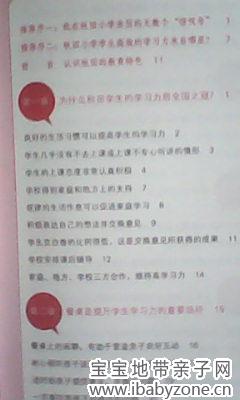 推荐序一：
推荐序二：秋田小学学生高效的学习力来自哪里？ 7
前 言 认识秋田的教育特色 11
第一章 为什么秋田学生的学习力居全国之冠？ 1
良好的生活习惯可以提高学生的学习力 2
学生几乎没有不去上课或上课不专心听讲的情形 3
学生的上课态度非常认真积极 4
学校得到家庭和地方上的支持 7
规律的生活作息可以促进家庭学习 8
积极表达自己的想法并交换意见 9
学生交白卷的比例很低，这是交换意见所获得的成果 11
学校安排课后辅导 12
家庭、地方、学校三方合作，维持高学习力 14
第二章 餐桌是提升学生学习力的重要场所 15
餐桌上的闲聊，有助于营造亲子良好互动 16
宝宝地带亲子网
www.ibabyzone.cn